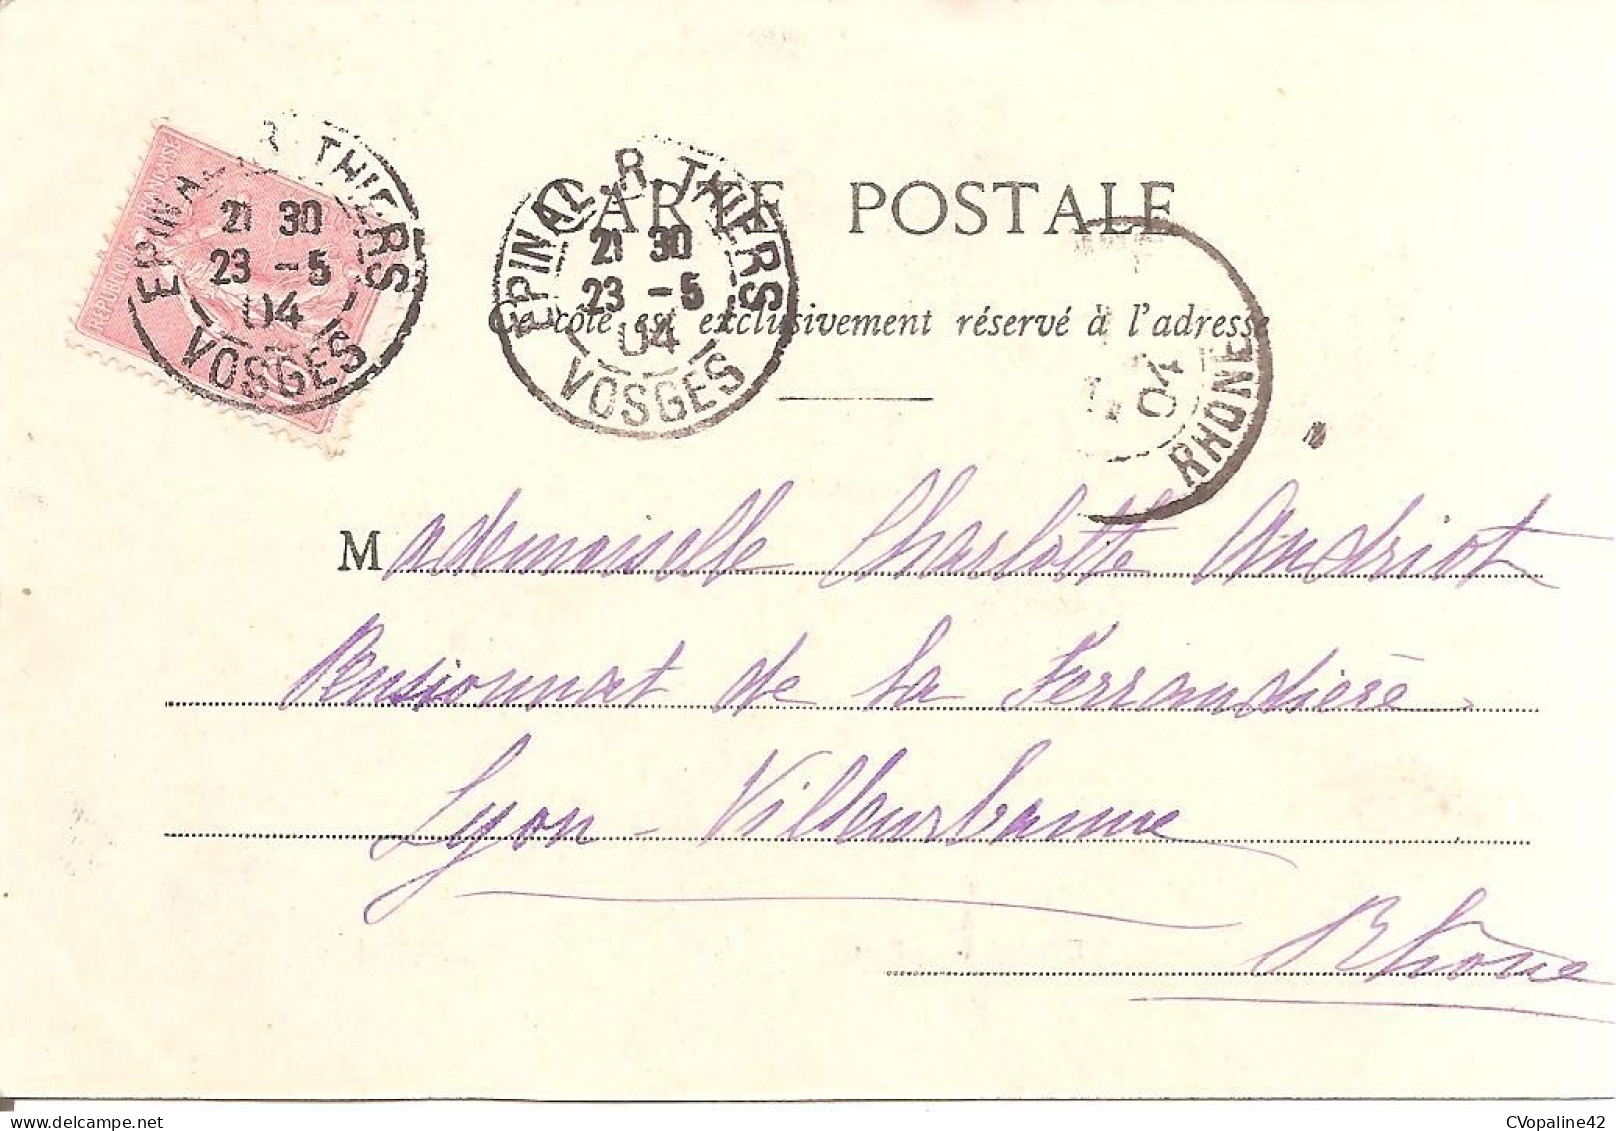 RÉPUBLIQUE FRANÇAISE
EPINAL R. THIERS
21 30
23 - 5
04
VOSGES
EPINAL - R. THIERS
21 30
23 - 5
04
VOSGES
CARTE POSTALE
Ce côté est exclusivement réservé à l'adresse
04
RHONE
Mademoiselle Charlotte Andriot
Pensionnat de la Ferrandière
Lyon - Villeurbanne
Rhône
CVopaline42